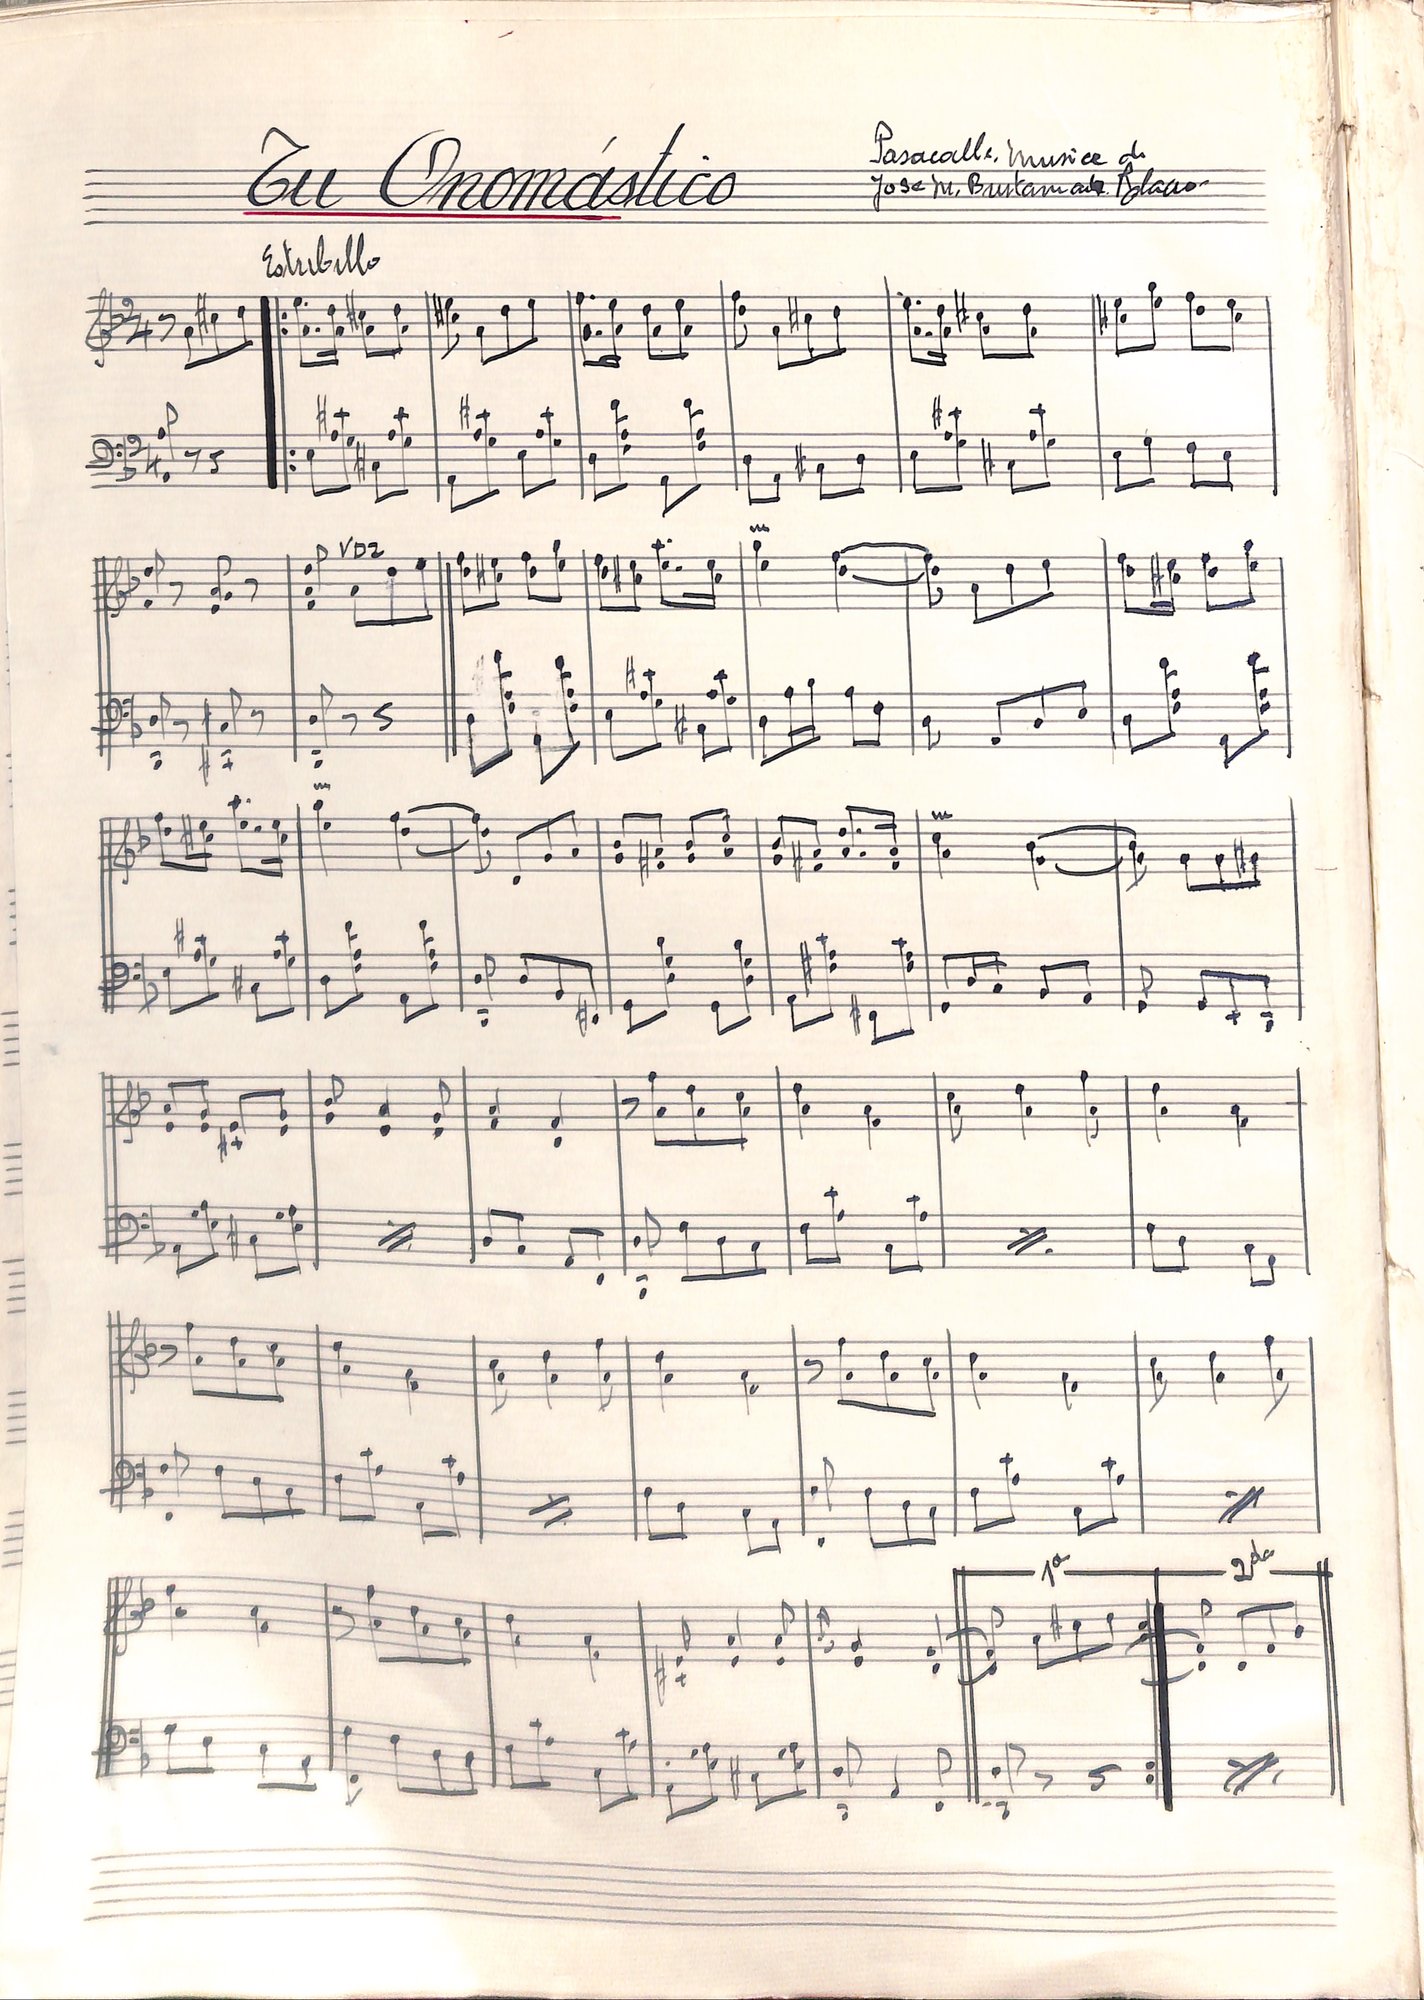 Tu Onomástico
Pasacalle. Musica de
Jose M. Bustamante
Estribillo
2/4
VDZ
1ª
2da